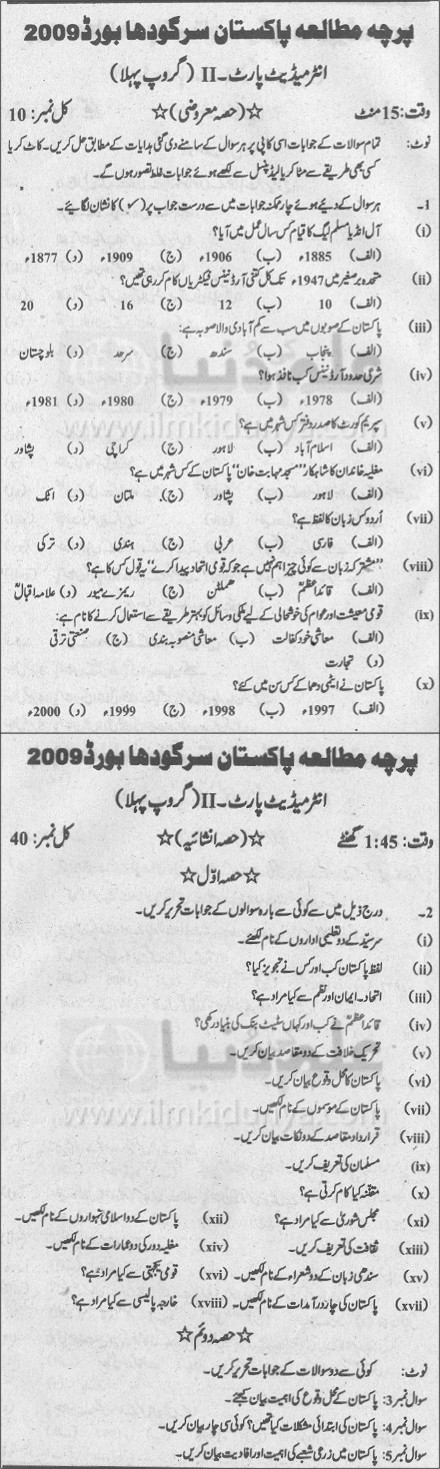 پرچہ مطالعہ پاکستان سرگودھا بورڈ 2009
انٹرمیڈیٹ پارٹ۔ II (گروپ پہلا)
وقت: 15 منٹ ☆(حصہ معروضی)☆ کل نمبر: 10
نوٹ: تمام سوالات کے جوابات اسی کاپی پر ہر سوال کے سامنے دی گئی ہدایات کے مطابق حل کریں۔ کاٹ کر یا
کسی بھی طریقے سے مٹا کر یا لیڈ پنسل سے لکھے ہوئے جوابات غلط تصور ہوں گے۔
1۔ ہر سوال کے دیئے ہوئے چار ممکنہ جوابات میں سے درست جواب پر (✓) کا نشان لگائیے۔
(i) آل انڈیا مسلم لیگ کا قیام کس سال عمل میں آیا؟
(الف) 1885ء (ب) 1906ء (ج) 1909ء (د) 1877ء
(ii) متحدہ برصغیر میں 1947ء تک کل کتنی آرڈیننس فیکٹریاں کام کر رہی تھیں؟
(الف) 10 (ب) 12 (ج) 16 (د) 20
(iii) پاکستان کے صوبوں میں سب سے کم آبادی والا صوبہ ہے:
(الف) پنجاب (ب) سندھ (ج) سرحد (د) بلوچستان
(iv) شرعی حدود آرڈیننس کب نافذ ہوا؟
(الف) 1978ء (ب) 1979ء (ج) 1980ء (د) 1981ء
(v) سپریم کورٹ کا صدر دفتر کس شہر میں ہے؟
(الف) اسلام آباد (ب) لاہور (ج) کراچی (د) پشاور
(vi) مغلیہ خاندان کا شاہکار "مسجد مہابت خان" پاکستان کے کس شہر میں ہے؟
(الف) لاہور (ب) پشاور (ج) ملتان (د) اٹک
(vii) اُردو کس زبان کا لفظ ہے؟
(الف) فارسی (ب) عربی (ج) ہندی (د) ترکی
(viii) "مشترکہ زبان سے کوئی چیز اہم نہیں ہے جو کہ قومی اتحاد پیدا کرے" یہ قول کس کا ہے؟
(الف) قائداعظمؒ (ب) ہملٹن (ج) ریمزے میور (د) علامہ اقبالؒ
(ix) قومی معیشت اور عوام کی خوشحالی کے لیے ملکی وسائل کو بہتر طریقے سے استعمال کرنے کا نام ہے:
(الف) معاشی خود کفالت (ب) معاشی منصوبہ بندی (ج) صنعتی ترقی
(د) تجارت
(x) پاکستان نے ایٹمی دھماکے کس سن میں کئے؟
(الف) 1997ء (ب) 1998ء (ج) 1999ء (د) 2000ء
پرچہ مطالعہ پاکستان سرگودھا بورڈ 2009
انٹرمیڈیٹ پارٹ۔ II (گروپ پہلا)
وقت: 1:45 گھنٹے ☆(حصہ انشائیہ)☆ کل نمبر: 40
☆حصہ اوّل☆
2۔ درج ذیل میں سے کوئی سے بارہ سوالوں کے جوابات تحریر کریں۔
(i) سرسیّد کے دو تعلیمی اداروں کے نام لکھئے۔
(ii) لفظ پاکستان کب اور کس نے تجویز کیا؟
(iii) اتحاد۔ ایمان اور نظم سے کیا مراد ہے؟
(iv) قائداعظمؒ نے کب اور کہاں سٹیٹ بنک کی بنیاد رکھی؟
(v) تحریک خلافت کے دو مقاصد بیان کریں۔
(vi) پاکستان کا محل وقوع بیان کریں۔
(vii) پاکستان کے موسموں کے نام لکھیں۔
(viii) قرارداد مقاصد کے دو نکات بیان کریں۔
(ix) مسلمان کی تعریف کریں۔
(x) مقننہ کیا کام کرتی ہے؟
(xi) مجلس شوریٰ سے کیا مراد ہے؟ (xii) پاکستان کے دو اسلامی تہواروں کے نام لکھیں۔
(xiii) ثقافت کی تعریف کریں۔ (xiv) مغلیہ دور کی دو عمارات کے نام لکھیں۔
(xv) سندھی زبان کے دو شعراء کے نام لکھیں۔ (xvi) قومی یکجہتی سے کیا مراد ہے؟
(xvii) پاکستان کی چار درآمدات کے نام لکھیں۔ (xviii) خارجہ پالیسی سے کیا مراد ہے؟
☆حصہ دوئم☆
نوٹ: کوئی سے دو سوالات کے جوابات تحریر کریں۔
سوال نمبر 3: پاکستان کے محل وقوع کی اہمیت بیان کیجئے۔
سوال نمبر 4: پاکستان کی ابتدائی مشکلات کیا تھیں؟ کوئی سی چار بیان کریں۔
سوال نمبر 5: پاکستان میں زرعی شعبے کی اہمیت اور افادیت بیان کریں۔
علم کی دُنیا
www.ilmkidunya.com
علم کی دُنیا
www.ilmkidunya.com